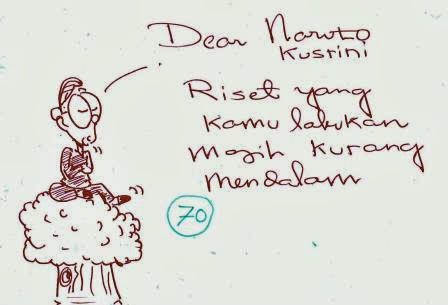 Dear Naruto
Kusrini
Riset yang
kamu lakukan
masih kurang
mendalam
70